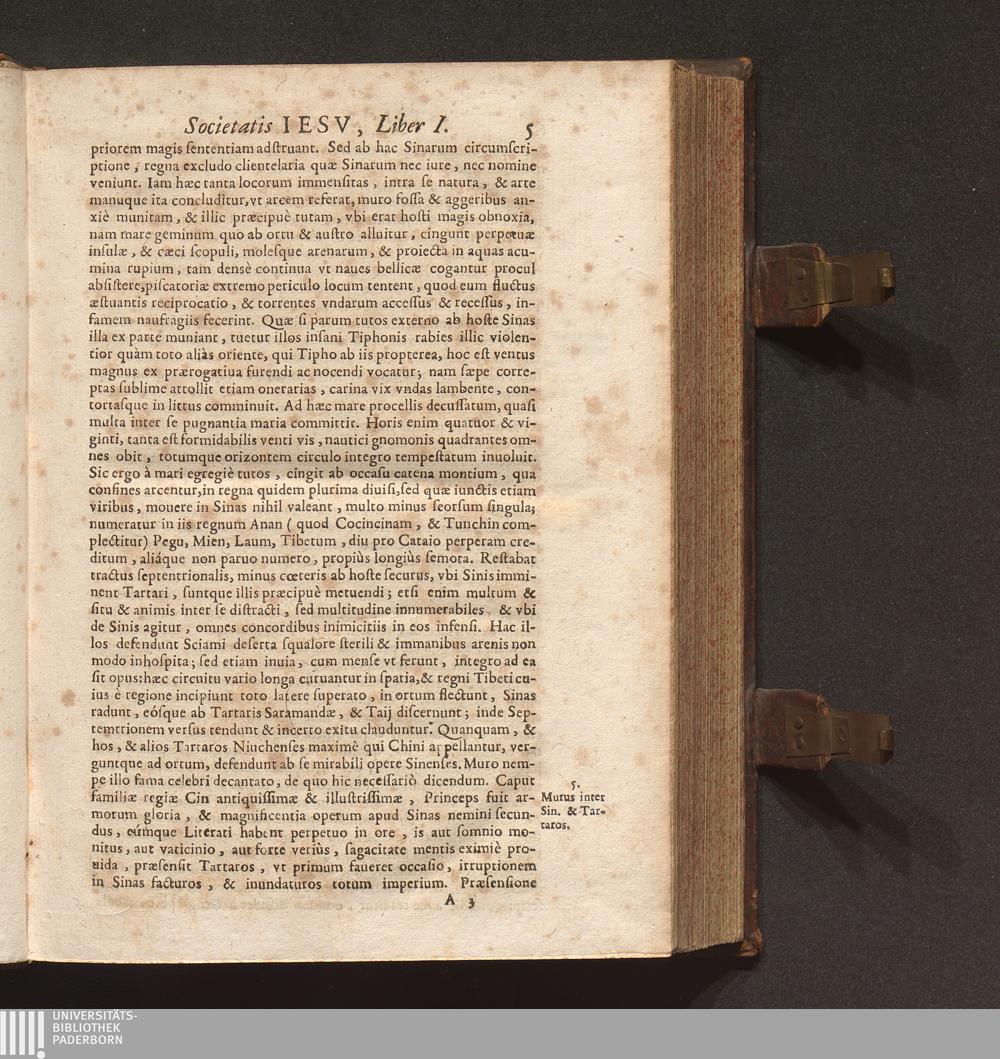 Societatis IESV, Liber I. 5
priorem magis ſententiam adſtruant. Sed ab hac Sinarum circumſcri-
ptione, regna excludo clientelaria quæ Sinarum nec iure, nec nomine
veniunt. Iam hæc tanta locorum immenſitas, intra ſe natura, & arte
manuque ita concluditur, vt arcem referat, muro foſſa & aggeribus an-
xiè munitam, & illic præcipuè tutam, vbi erat hoſti magis obnoxia,
nam mare geminum quo ab ortu & auſtro alluitur, cingunt perpetuæ
inſulæ, & cæci ſcopuli, moleſque arenarum, & proiecta in aquas acu-
mina rupium, tam densè continua vt naues bellicæ cogantur procul
abſiſtere, piſcatoriæ extremo periculo locum tentent, quod eum fluctus
æſtuantis reciprocatio, & torrentes vndarum acceſſus & receſſus, in-
famem naufragiis fecerint. Quæ ſi parum tutos externo ab hoſte Sinas
illa ex parte muniant, tuetur illos inſani Tiphonis rabies illic violen-
tior quàm toto aliàs oriente, qui Tipho ab iis propterea, hoc eſt ventus
magnus ex prærogatiua furendi ac nocendi vocatur; nam ſæpe corre-
ptas ſublime attollit etiam onerarias, carina vix vndas lambente, con-
tortaſque in littus comminuit. Ad hæc mare procellis decuſſatum, quaſi
multa inter ſe pugnantia maria committit. Horis enim quatuor & vi-
ginti, tanta eſt formidabilis venti vis, nautici gnomonis quadrantes om-
nes obit, totumque orizontem circulo integro tempeſtatum inuoluit.
Sic ergo à mari egregiè tutos, cingit ab occaſu catena montium, qua
confines arcentur, in regna quidem plurima diuiſi, ſed quæ iunctis etiam
viribus, mouere in Sinas nihil valeant, multo minus ſeorſum ſingula;
numeratur in iis regnum Anan (quod Cocincinam, & Tunchin com-
plectitur) Pegu, Mien, Laum, Tibetum, diu pro Cataio perperam cre-
ditum, aliáque non paruo numero, propiùs longiùs ſemota. Reſtabat
tractus ſeptentrionalis, minus cœteris ab hoſte ſecurus, vbi Sinis immi-
nent Tartari, ſuntque illis præcipuè metuendi; etſi enim multum &
ſitu & animis inter ſe diſtracti, ſed multitudine innumerabiles, & vbi
de Sinis agitur, omnes concordibus inimicitiis in eos infenſi. Hac il-
los defendunt Sciami deſerta ſqualore ſterili & immanibus arenis non
modo inhoſpita; ſed etiam inuia, cum menſe vt ferunt, integro ad ea
ſit opus: hæc circuitu vario longa curuantur in ſpatia, & regni Tibeti cu-
ius è regione incipiunt toto latere ſuperato, in ortum flectunt, Sinas
radunt, eóſque ab Tartaris Saramandæ, & Taij diſcernunt; inde Sep-
temtrionem verſus tendunt & incerto exitu clauduntur. Quanquam, &
hos, & alios Tartaros Niuchenſes maximè qui Chini appellantur, ver-
guntque ad ortum, defendunt ab ſe mirabili opere Sinenſes. Muro nem-
pe illo fama celebri decantato, de quo hic neceſſariò dicendum. Caput
familiæ regiæ Cin antiquiſſimæ & illuſtriſſimæ, Princeps fuit ar-
morum gloria, & magnificentia operum apud Sinas nemini ſecun-
dus, eúmque Literati habent perpetuo in ore, is aut ſomnio mo-
nitus, aut vaticinio, aut forte veriùs, ſagacitate mentis eximiè pro-
uida, præſenſit Tartaros, vt primum faueret occaſio, irruptionem
in Sinas facturos, & inundaturos totum imperium. Præſenſione
5.
Murus inter
Sin. & Tar-
taros.
A 3
UNIVERSITÄTS-
BIBLIOTHEK
PADERBORN